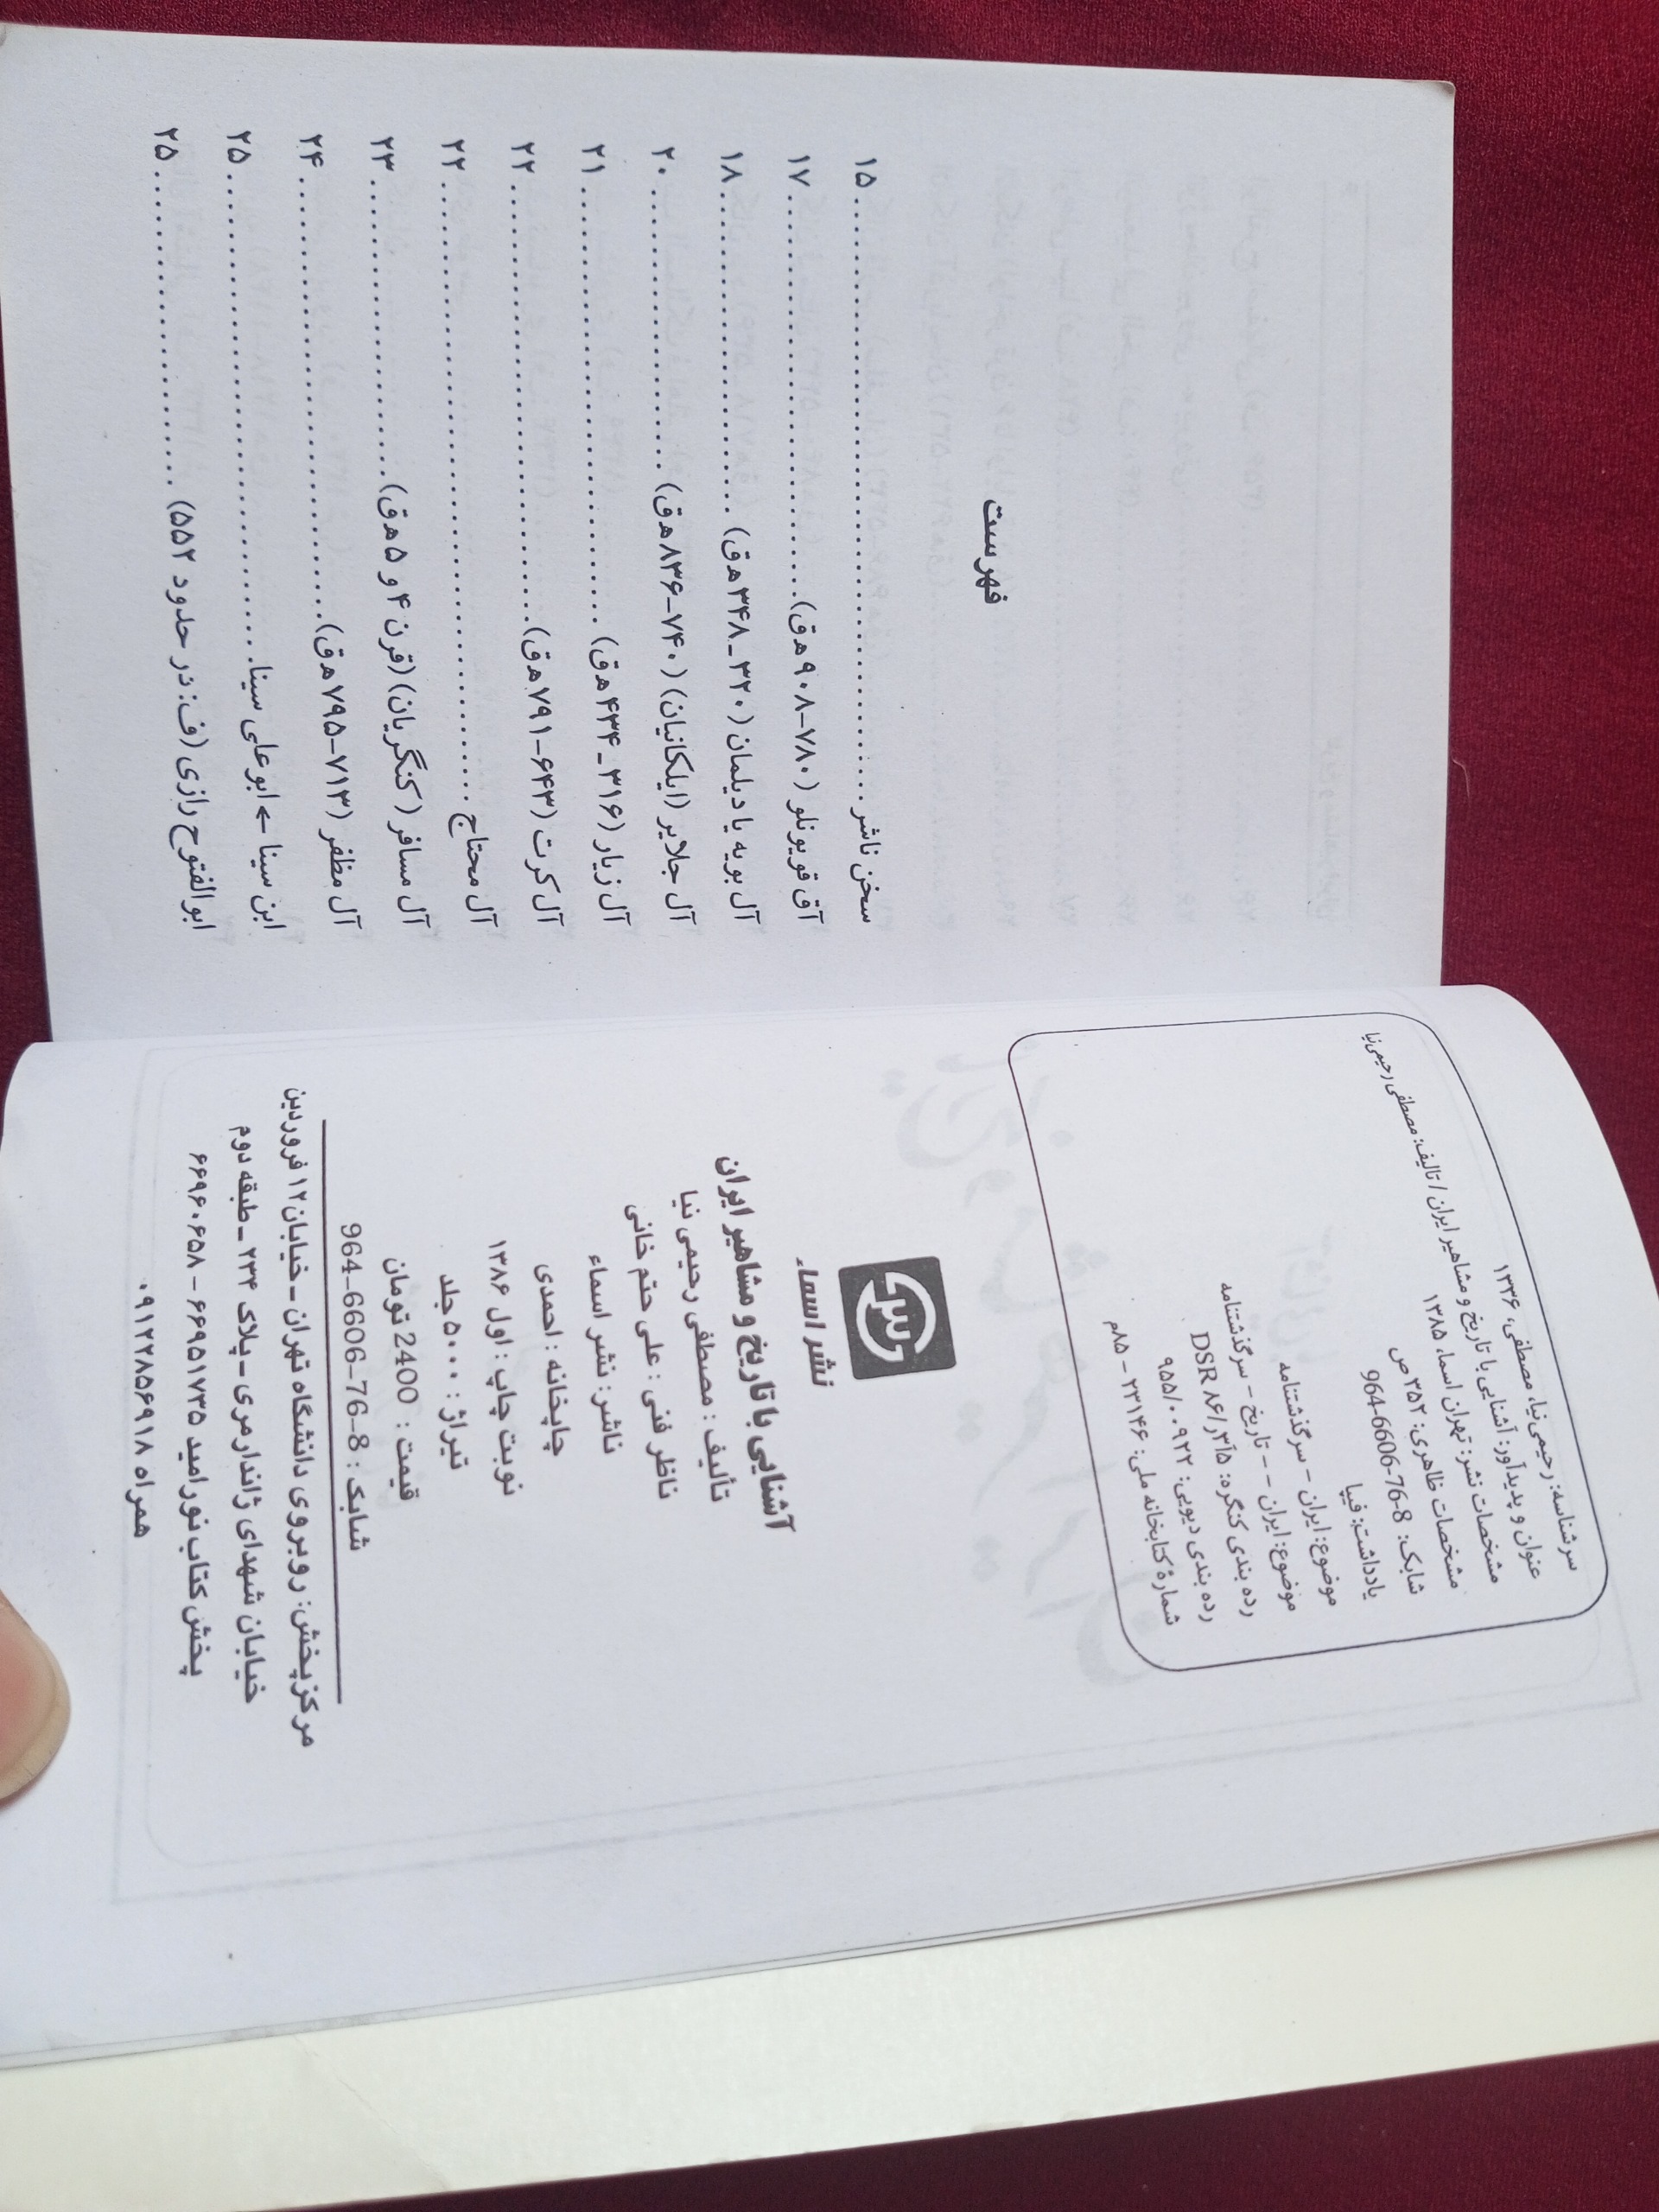 سرشناسه: رحیمی‌نیا، مصطفی، ۱۳۳۶
عنوان و پدیدآور: آشنایی با تاریخ و مشاهیر ایران / تالیف: مصطفی رحیمی‌نیا
مشخصات نشر: تهران اسما، ۱۳۸۵
مشخصات ظاهری: ۳۵۲ ص
شابک: 8-76-6606-964
یادداشت: فیپا
موضوع: ایران – سرگذشتنامه
موضوع: ایران – - تاریخ – سرگذشتنامه
رده بندی کنگره: ۵آ۳ر/۸۶ DSR
رده بندی دیویی: ۹۵۵/۰۰۹۲۲
شمارهٔ کتابخانه ملی: ۲۳۱۴۶ – ۸۵م
نشر اسماء
آشنایی با تاریخ و مشاهیر ایران
تألیف : مصطفی رحیمی نیا
ناظر فنی : علی حتم خانی
ناشر: نشر اسماء
چاپخانه : احمدی
نوبت چاپ : اول ۱۳۸۶
تیراژ : ۵۰۰۰ جلد
قیمت : 2400 تومان
شابک : 8–76–6606–964
مرکز پخش: روبروی دانشگاه تهران ـ خیابان ۱۲ فروردین
خیابان شهدای ژاندارمری ـ پلاک ۲۳۴ ـ طبقه دوم
پخش کتاب نور امید ۶۶۹۵۱۷۳۵ – ۶۶۹۶۰۶۵۸
همراه ۰۹۱۲۲۸۵۶۹۱۸
فهرست
سخن ناشر ........ ۱۵
آق قویونلو (۷۸۰–۹۰۸ ه‍ ق) ........ ۱۷
آل بویه یا دیلمان (۳۲۰ـ۳۴۸ ه‍ ق) ........ ۱۸
آل جلایر (ایلکانیان) (۷۴۰–۸۳۶ ه‍ ق) ........ ۲۰
آل زیار (۳۱۶ـ۴۳۴ ه‍ ق) ........ ۲۱
آل کرت (۶۴۳–۷۹۱ ه‍ ق) ........ ۲۲
آل محتاج ........ ۲۲
آل مسافر (کنگریان) (قرن ۴ و ۵ ه‍ ق) ........ ۲۳
آل مظفر (۷۱۳–۷۹۵ ه‍ ق) ........ ۲۴
ابن سینا ← ابوعلی سینا ........ ۲۵
ابوالفتوح رازی (ف: در حدود ۵۵۲) ........ ۲۵